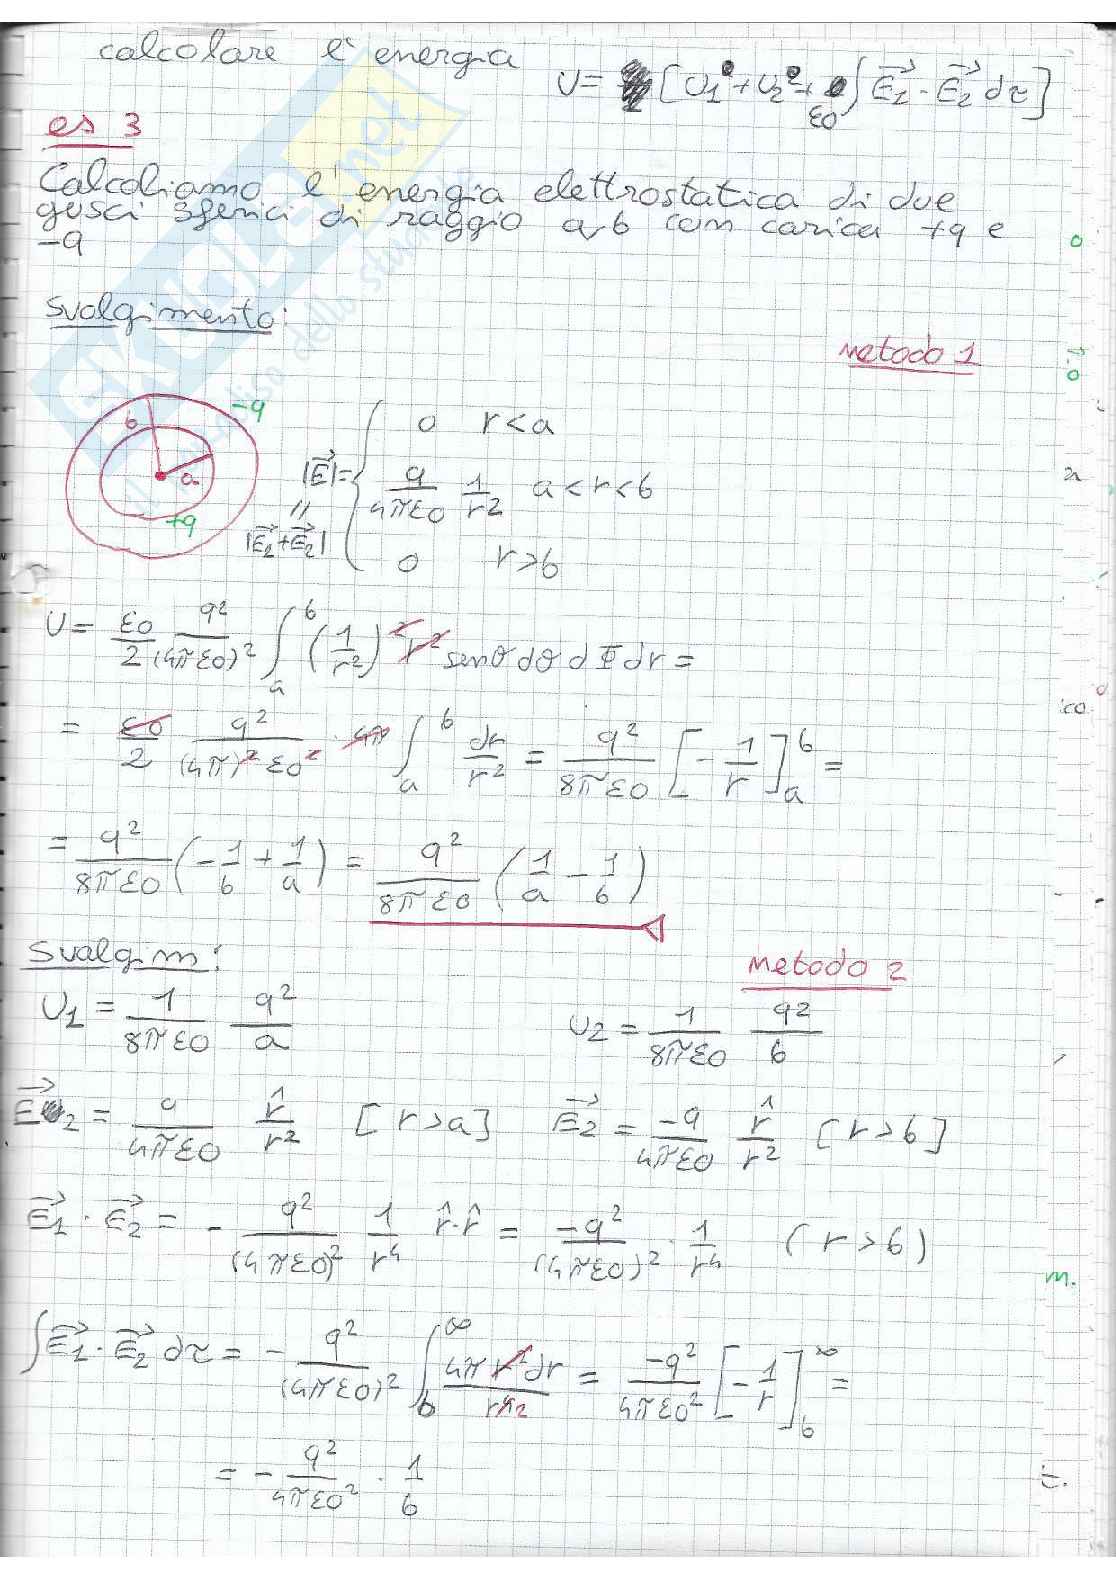 calcolare l'energia
U = [U1 + U2 + ε0 ∫ E1 · E2 dτ]
es 3
Calcoliamo l'energia elettrostatica di due
gusci sferici di raggio a, b con carica +q e
-q
svolgimento:
metodo 1
b -q
a
+q
|E| = { 0 r < a
q/4πε0 1/r² a < r < b
0 r > b
|E1 + E2|
U = ε0/2 q²/(4πε0)² ∫_a^b (1/r²)² r² senθ dθ dΦ dr =
= ε0/2 q²/(4π)² ε0² · 4π ∫_a^b dr/r² = q²/8πε0 [-1/r]_a^b =
= q²/8πε0 (-1/b + 1/a) = q²/8πε0 (1/a - 1/b)
Svolgim:
Metodo 2
U1 = 1/8πε0 q²/a U2 = 1/8πε0 q²/b
E2 = q/4πε0 r̂/r² [r > a] E2 = -q/4πε0 r̂/r² [r > b]
E1 · E2 = - q²/(4πε0)² 1/r⁴ r̂·r̂ = -q²/(4πε0)² · 1/r⁴ (r > b)
∫ E1 · E2 dτ = - q²/(4πε0)² ∫_b^∞ 4π r² dr/r⁴ = -q²/4πε0² [-1/r]_b^∞ =
= - q²/4πε0² · 1/b